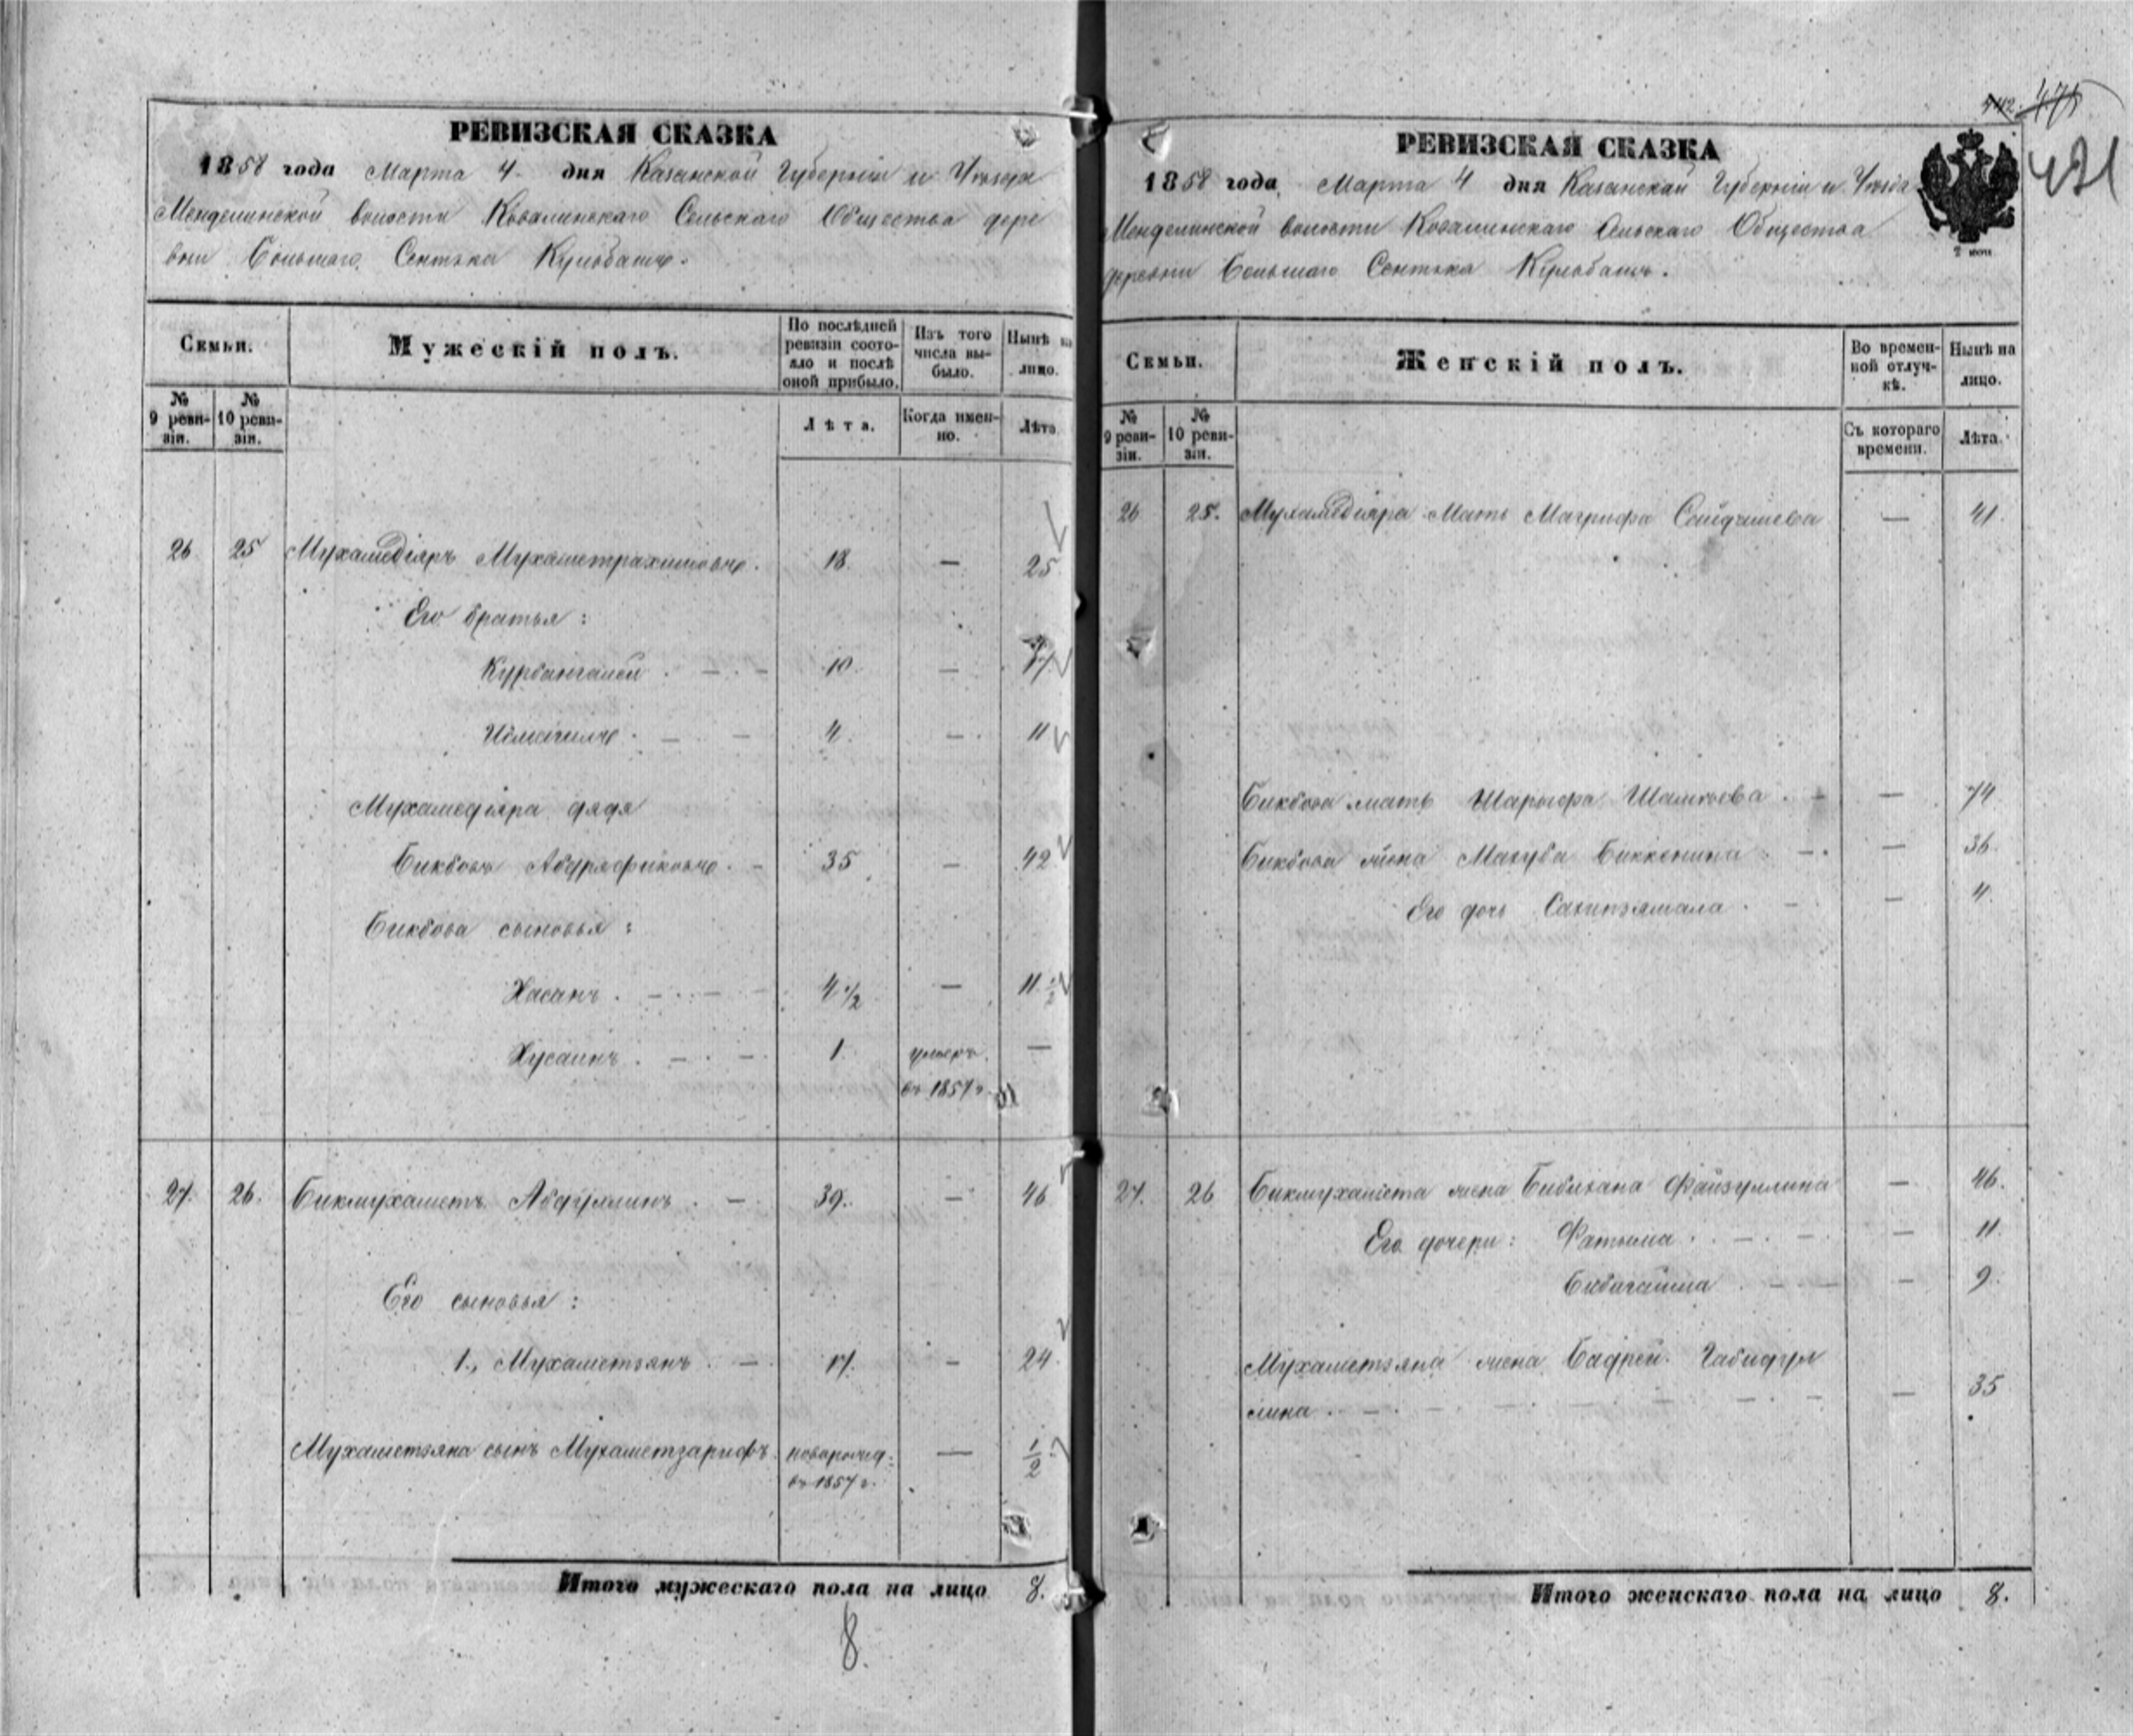 РЕВИЗСКАЯ СКАЗКА
1858 года Марта 4 дня Казанской Губерніи и Уѣзда
Менделинской волости Ковалинскаго Сельскаго Общества дере
вни Большаго Сентяка Кульбашъ.
Семьи.
Мужескій полъ.
По послѣдней ревизіи состояло и послѣ оной прибыло.
Изъ того числа выбыло.
Нынѣ на лицо.
№ 9 ревизіи.
№ 10 ревизіи.
Лѣта.
Когда именно.
Лѣта.
26 25 Мухамедіяръ Мухаметрахимовъ. 18. — 25
Его братья:
Курбангалей . — . — 10. — 17
Исмагилъ . — — 4. — 11
Мухамедіяра дядя
Бикбовъ Абдряфиковъ . — 35 — 42
Бикбова сыновья:
Хасанъ . — . — — 4 1/2 — 11 1/2
Хусаинъ . — . — 1. умеръ —
въ 1857 г.
27. 26. Бикмухаметъ Абдуллинъ . — 39. — 46
Его сыновья:
1., Мухаметзянъ . — 17. — 24
Мухаметзяна сынъ Мухаметзарифъ новорожд: — 1/2
въ 1857 г.
Итого мужескаго пола на лицо 8.
8.
475
421
РЕВИЗСКАЯ СКАЗКА
1858 года, Марта 4 дня Казанской Губерніи и Уѣзда
Менделинской волости Ковалинскаго Сельскаго Общества
деревни Большаго Сентяка Кульбашъ.
Семьи.
Женскій полъ.
Во временной отлучкѣ.
Нынѣ на лицо.
№ 9 ревизіи.
№ 10 ревизіи.
Съ котораго времени.
Лѣта.
26 25. Мухамедіяра Мать Магрифа Сайдашева — 41.
Бикбова мать Шарифа Шамгаева . — — 74
Бикбова жена Магуба Биккенина . — . — 36
Его дочь Сахипзямала . — — 4.
27. 26 Бикмухамета жена Бибихана Файзуллина — 46.
Его дочери: Фатыма . . — . — — 11.
Бибигайша . — — — 9.
Мухаметзяна жена Бадрей. Габидул
лина . — . — . — . — — 35
Итого женскаго пола на лицо 8.